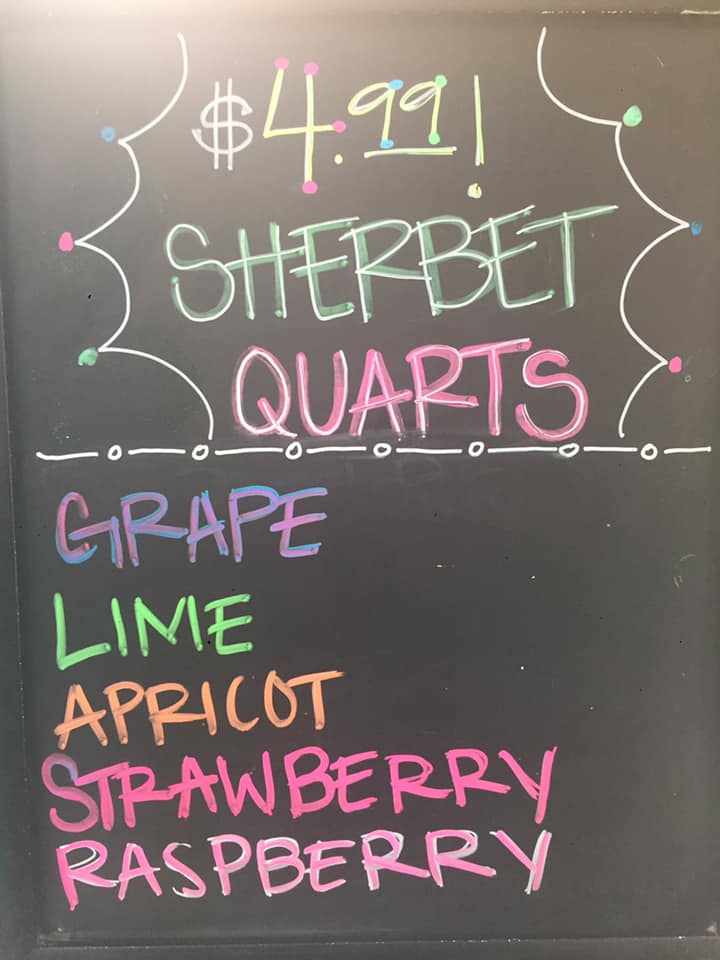 $4.99!
SHERBET
QUARTS
GRAPE
LIME
APRICOT
STRAWBERRY
RASPBERRY